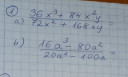 1 a) 36x³ + 84x²y / 72x² + 168xy
b) 16a³ - 80a² / 20a² - 100a =